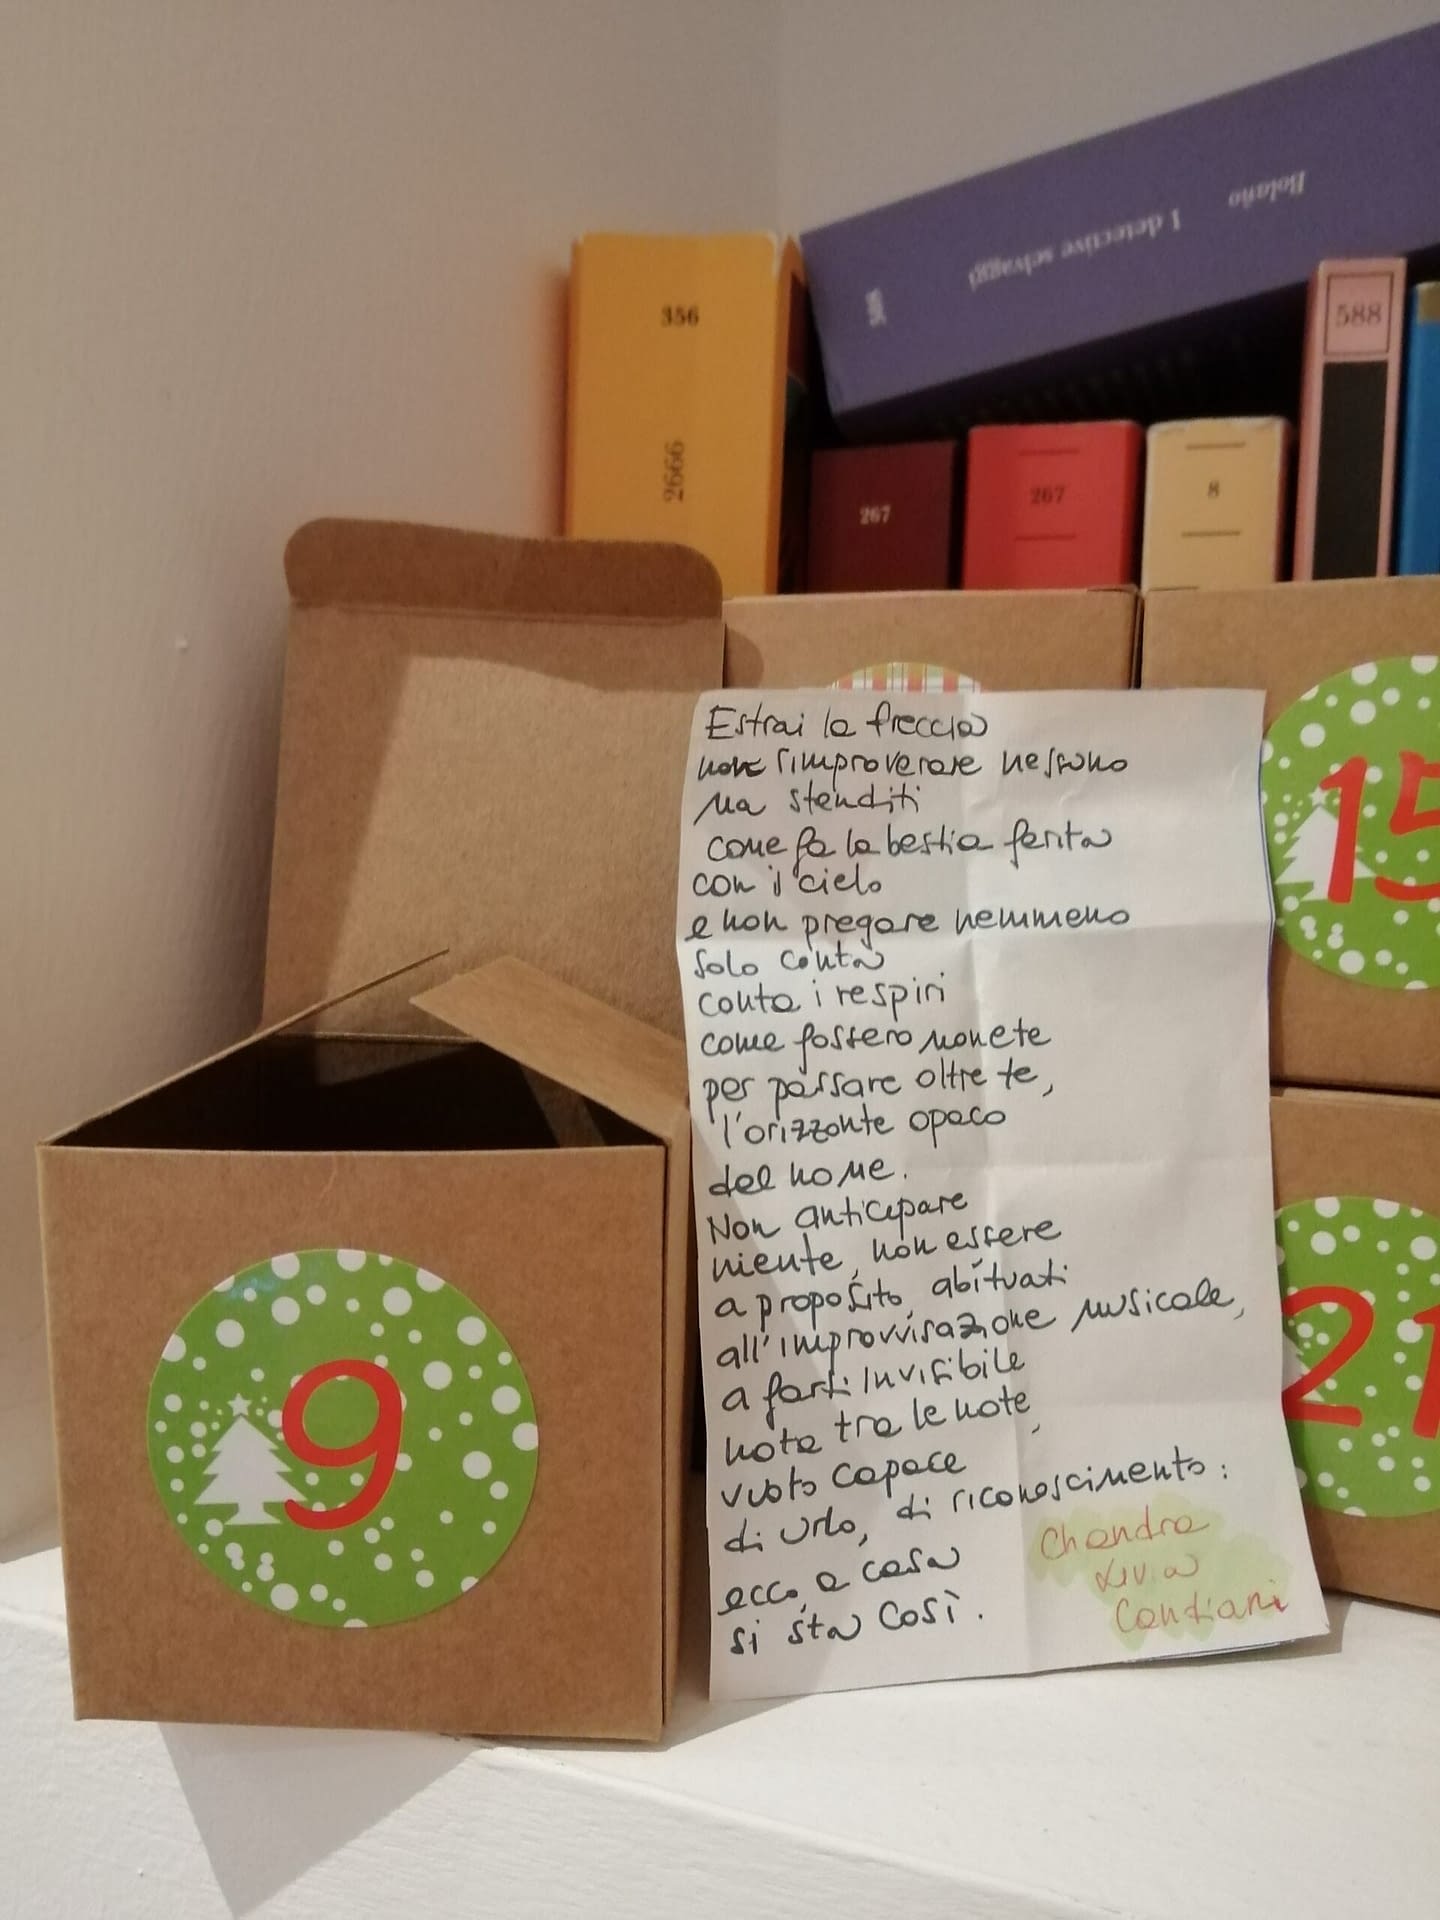 Bolaño
I detective selvaggi
588
356
2666
588
267
267
8
Estrai la freccia
non rimproverare nessuno
ma stenditi
come fa la bestia ferita
con il cielo
e non pregare nemmeno
solo conta
conta i respiri
come fossero monete
per passare oltre te,
l'orizzonte opaco
del nome.
Non anticipare
niente, non essere
a proposito, abituati
all'improvvisazione musicale,
a farti invisibile
nota tra le note,
vuoto capace
di urlo, di riconoscimento:
ecco, a casa
si sta così.
Chandra
Livia
Candiani
15
9
21